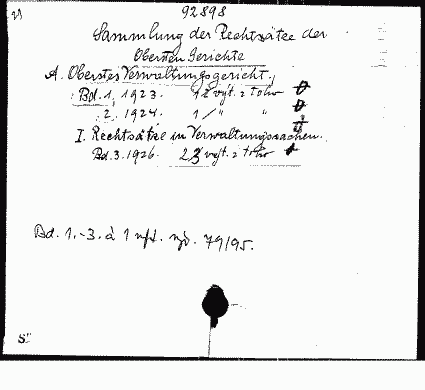 92898
Sammlung der Rechtsätze der
Obersten Gerichte
A. Oberstes Verwaltungsgericht.
Bd. 1, 1923. 12 výt. z toho
2. 1924. 1 / " "
I. Rechtsätze in Verwaltungssachen.
Bd. 3. 1926. výt. z toho
Bd. 1.-3. à 1 79/95.
S"